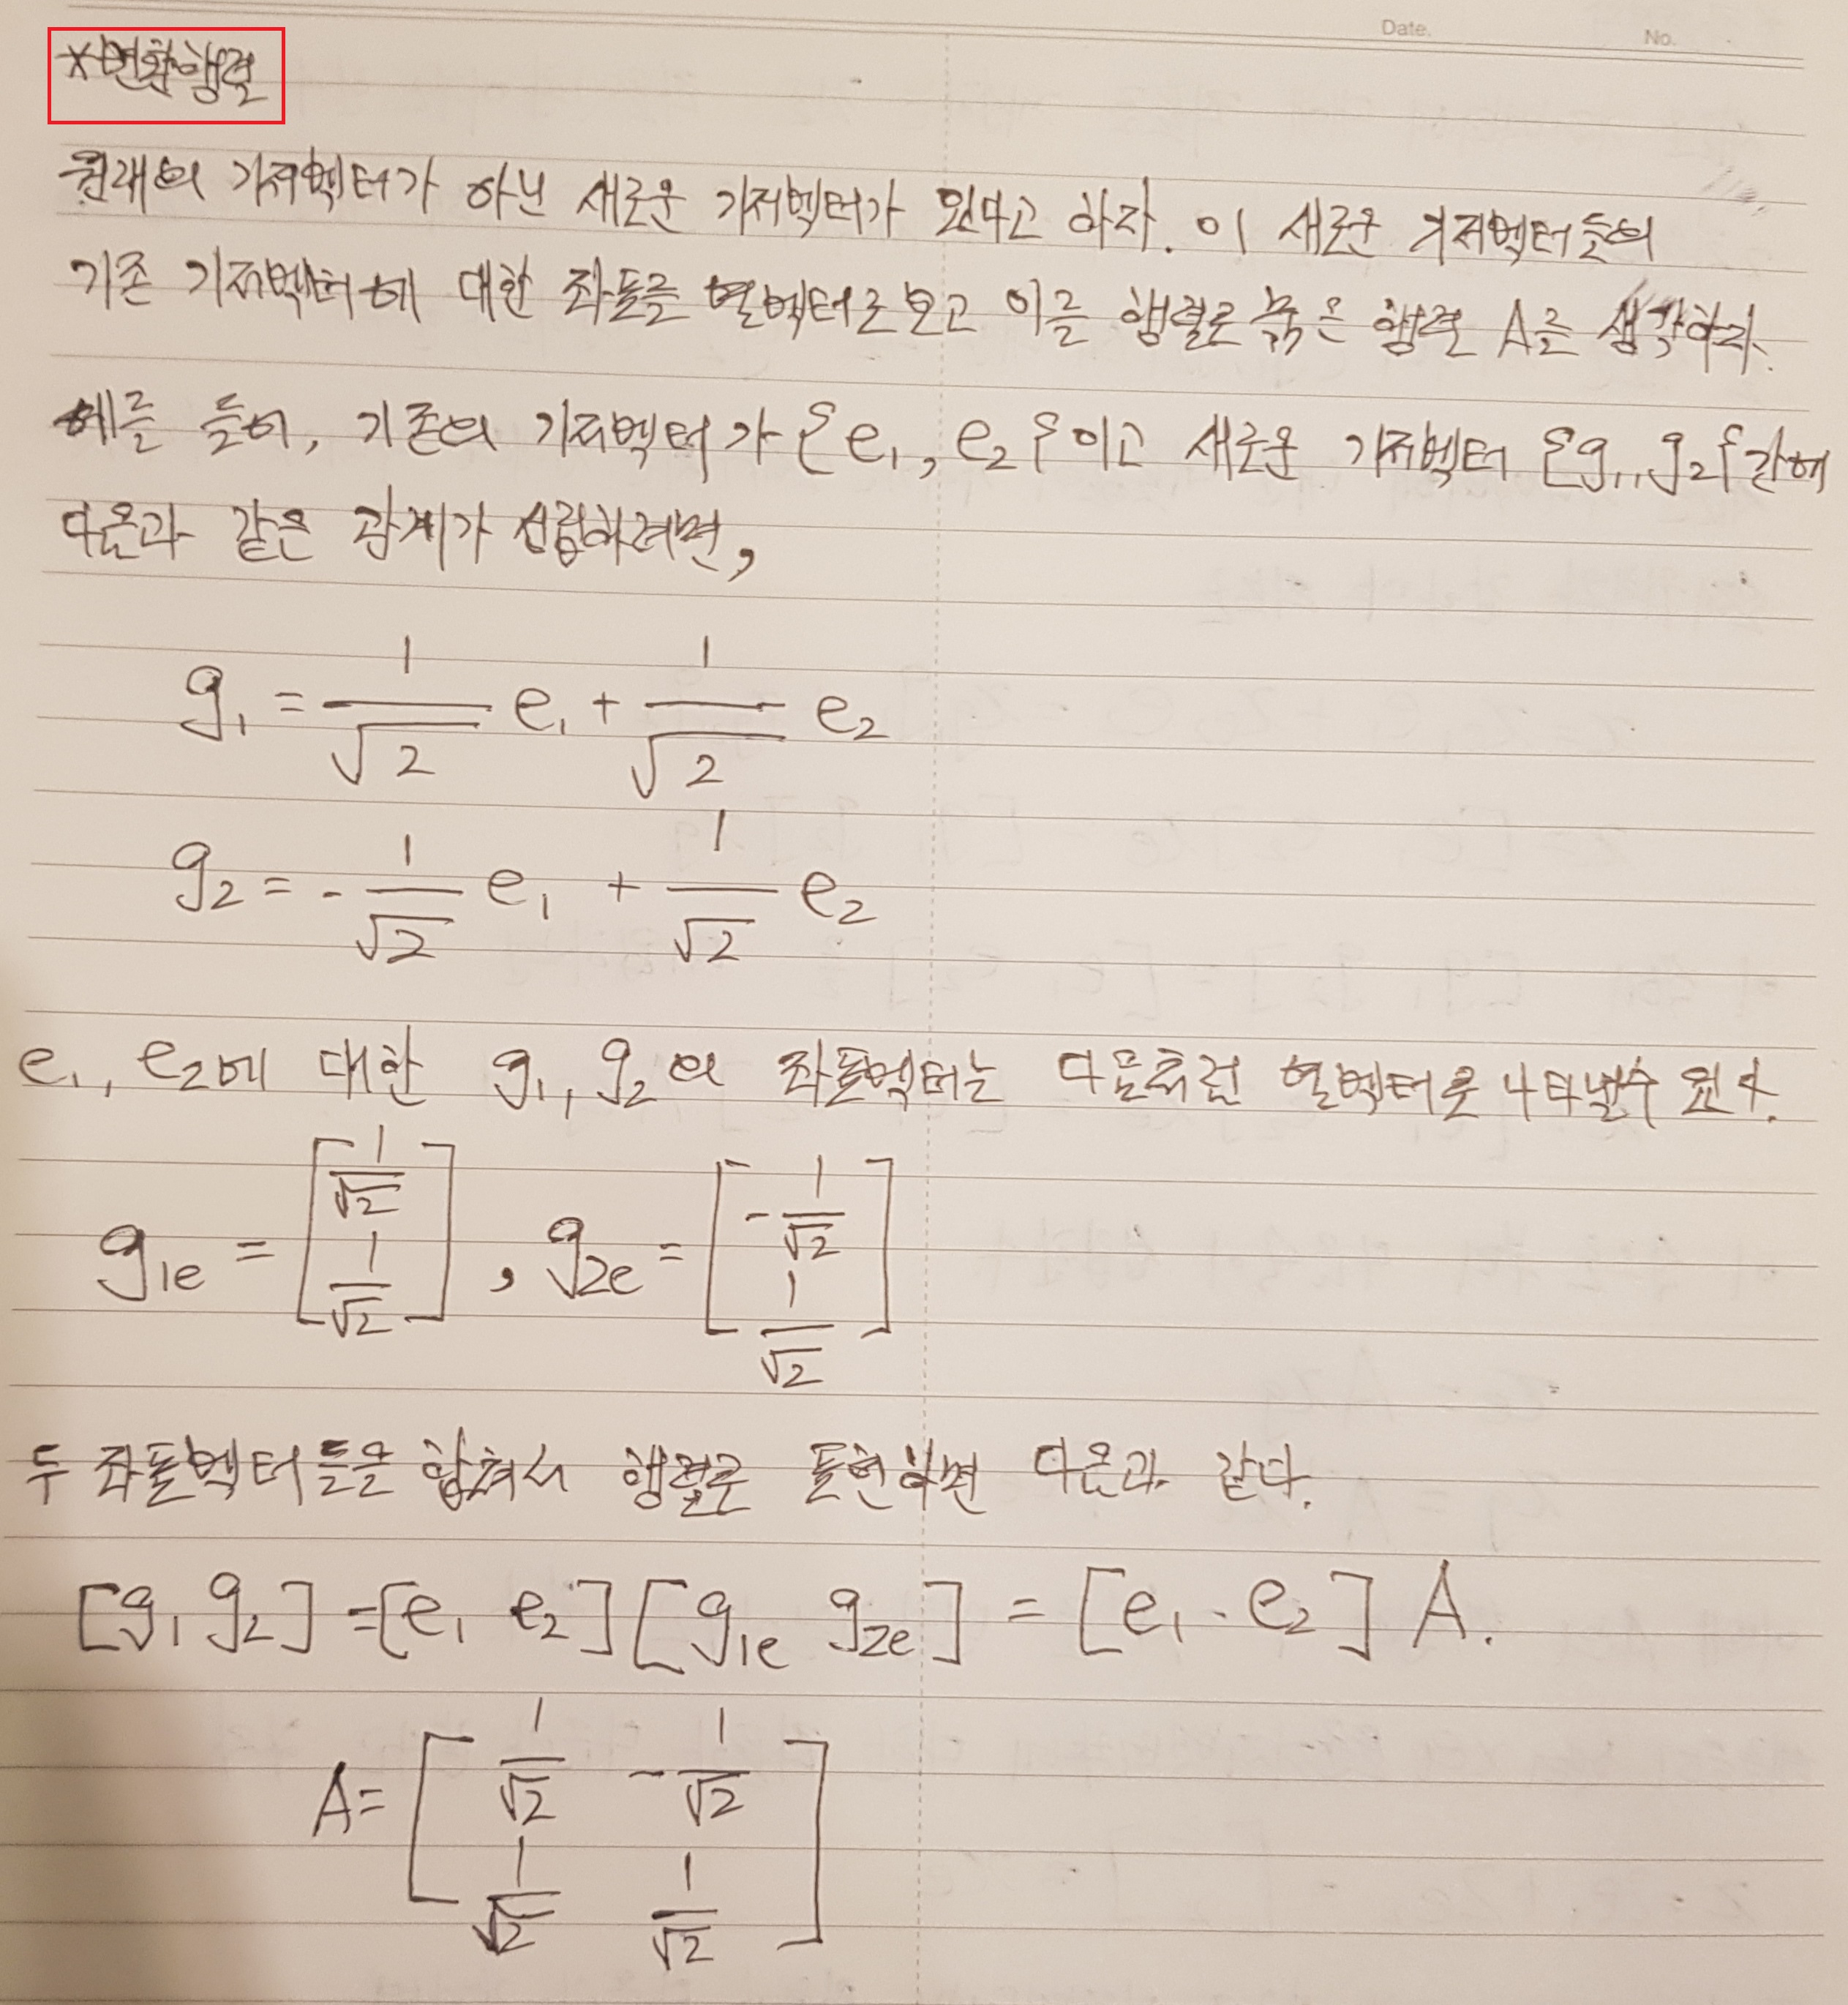 Date.
No.
*변환행렬
원래의 기저벡터가 아닌 새로운 기저벡터가 있다고 하자. 이 새로운 기저벡터들의
기존 기저벡터에 대한 좌표를 열벡터로 보고 이를 행렬로 묶은 행렬 A를 생각하자.
예를 들어, 기존의 기저벡터가 {e₁, e₂}이고 새로운 기저벡터 {g₁, g₂}간에
다음과 같은 관계가 성립하려면,
g₁ = 1/√2 e₁ + 1/√2 e₂
g₂ = - 1/√2 e₁ + 1/√2 e₂
e₁, e₂에 대한 g₁, g₂의 좌표벡터는 다음처럼 열벡터로 나타낼수 있다.
g₁e = [1/√2 1/√2], g₂e = [-1/√2 1/√2]
두 좌표벡터들을 합쳐서 행렬로 표현하면 다음과 같다.
[g₁ g₂] = [e₁ e₂] [g₁e g₂e] = [e₁ e₂] A.
A = [1/√2 -1/√2
1/√2 1/√2]